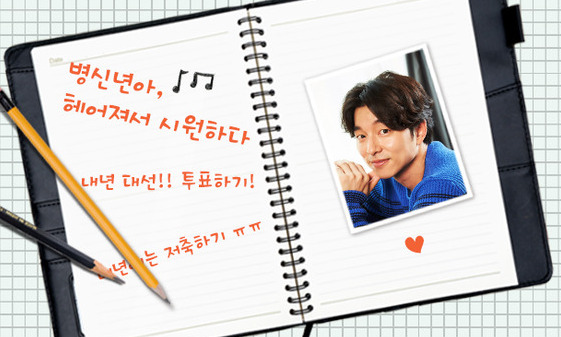 병신년아,
헤어져서 시원하다
내년 대선!! 투표하기!
저축하기 ㅠㅠ